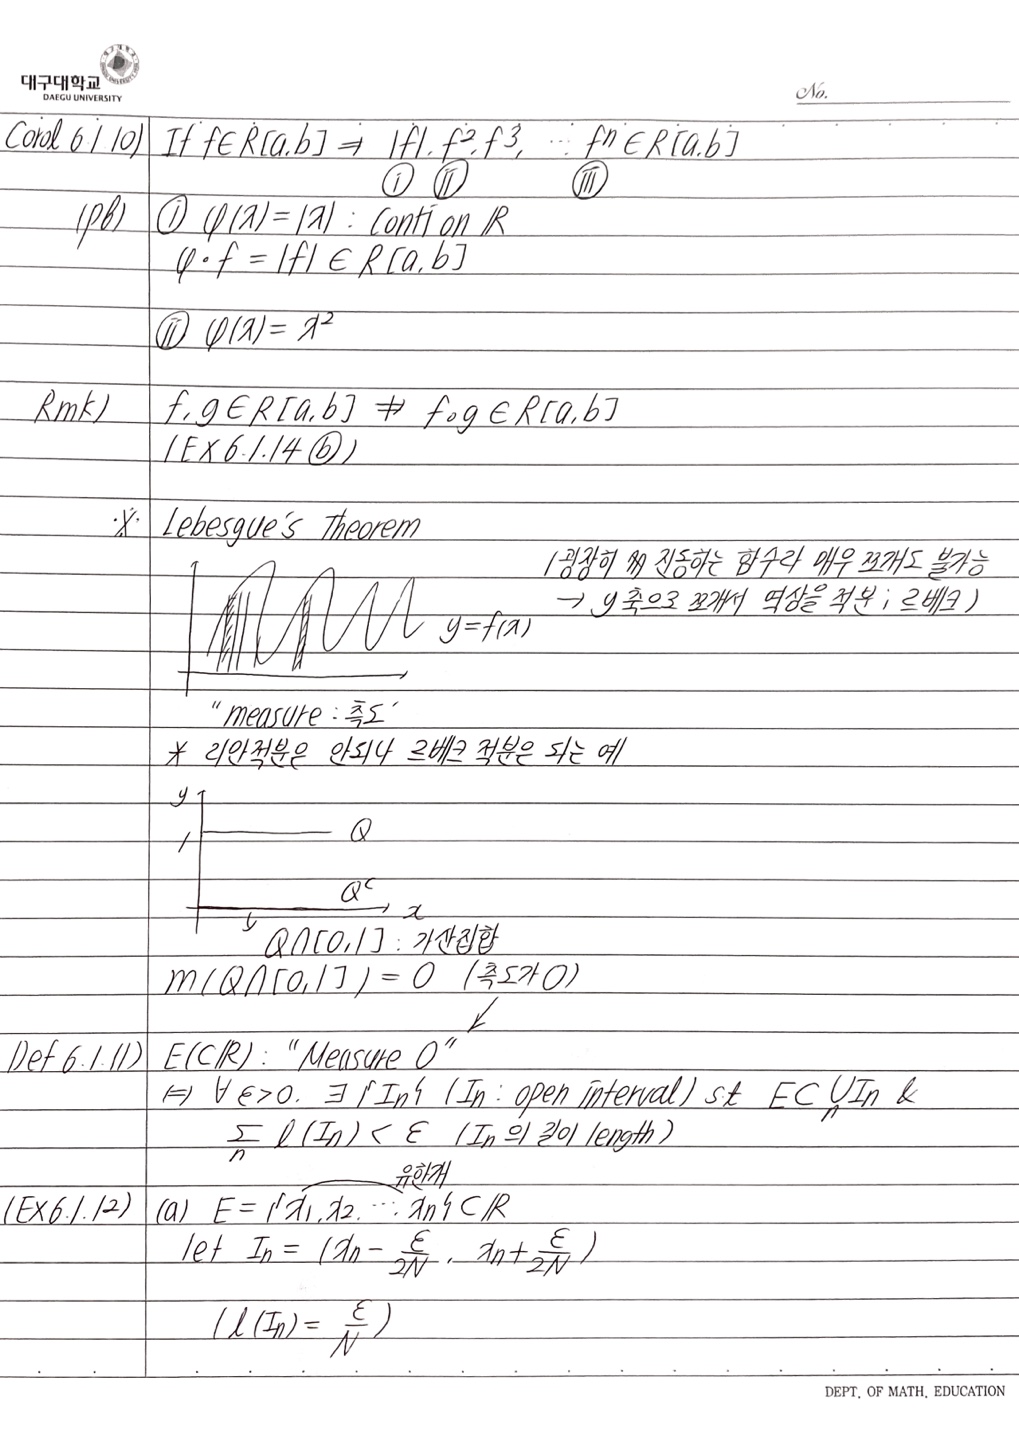 대구대학교
DAEGU UNIVERSITY
No.
Corol 6.1.10) If f∈R[a,b] ⇒ |f|, f², f³, ⋯ fⁿ ∈ R[a,b]
ⓘ ⓘⓘ ⓘⓘⓘ
(pf) ⓘ φ(x)=|x| : Conti on ℝ
φ∘f = |f| ∈ R[a,b]
ⓘⓘ φ(x) = x²
Rmk) f, g ∈ R[a,b] ⇏ f∘g ∈ R[a,b]
(EX 6.1.14 ⓑ)
※ Lebesgue's Theorem
(굉장히 진동하는 함수라 매우 쪼개도 불가능
→ y축으로 쪼개서 역상을 적분 ; 르베크)
y=f(x)
"measure : 측도"
* 리만적분은 안되나 르베크 적분은 되는 예
y
1
Q
Qᶜ
x
Q∩[0,1] : 가산집합
m(Q∩[0,1]) = 0 (측도가 0)
Def 6.1.11) E(⊂ℝ) : "Measure 0"
⇔ ∀ε>0, ∃{Iₙ} (Iₙ : open interval) s.t E⊂⋃ₙIₙ &
∑ₙ l(Iₙ) < ε (Iₙ의 길이 length)
유한개
(EX6.1.12) (a) E = {x₁, x₂, ⋯ xₙ} ⊂ ℝ
let Iₙ = (xₙ - ε/2N, xₙ + ε/2N)
(l(Iₙ) = ε/N)
DEPT. OF MATH. EDUCATION